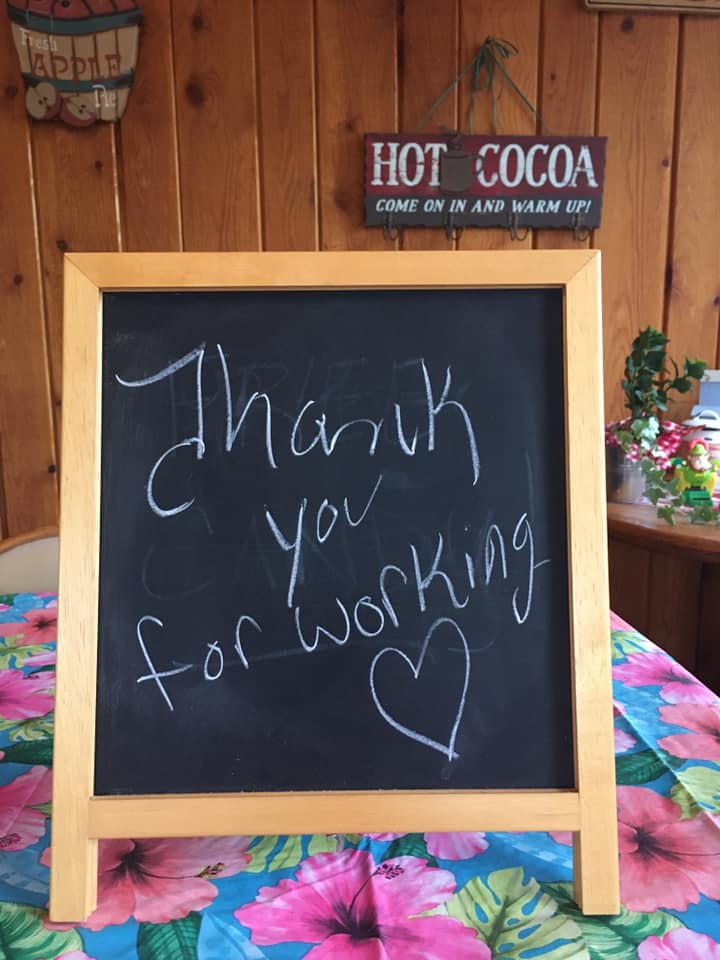 Fresh
APPLE
Pie
HOT COCOA
COME ON IN AND WARM UP!
Thank
you
for working